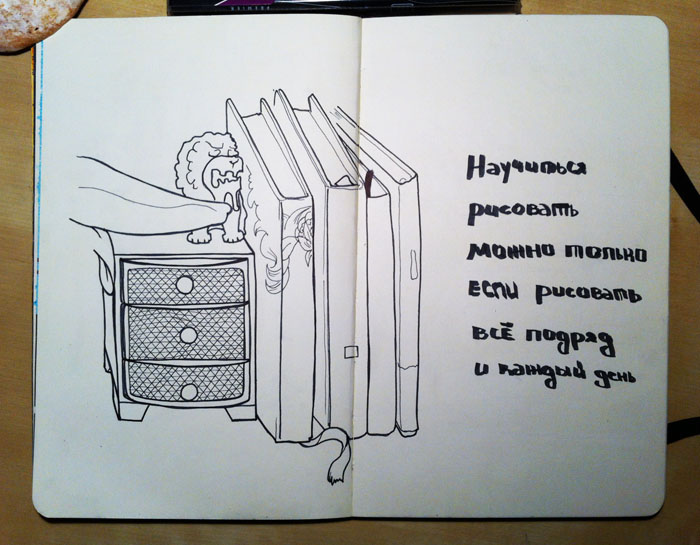 Научиться
рисовать
можно только
если рисовать
всё подряд
и каждый день